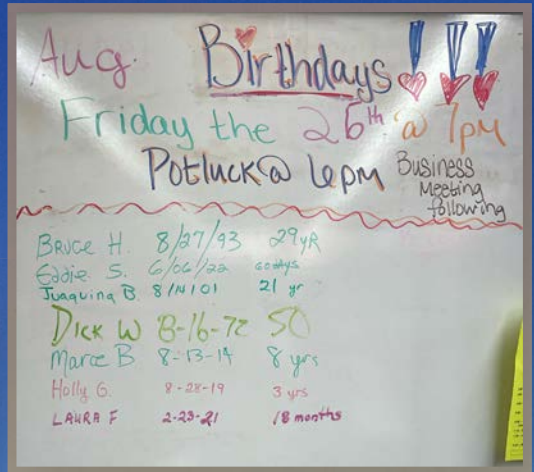 Aug. Birthdays!!!
Friday the 26th @ 7pm
Potluck @ 6pm Business
Meeting
following
Bruce H. 8/27/93 29yR
Eddie S. 6/06/22 60 days
Juaquina B. 8/14/01 21 yr
Dick W 8-16-72 50
Marce B 8-13-14 8 yrs
Holly G. 8-28-19 3 yrs
LAURA F 2-23-21 18 months